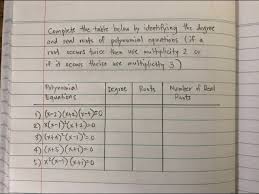 Complete the table below by identifying the degree
and real roots of polynomial equations (if a
root occurs twice then use multiplicity 2 or
if it occurs thrice use multiplicity 3)
Polynomial Equations Degree Roots Number of Real Roots
1) (x-2)(x+2)(x-4)=0
2) x(x-1)²(x+2)=0
3) (x+4)²(x-1)²=0
4) (x+5)(x+1)=0
5) x²(x-1)(x+1)=0